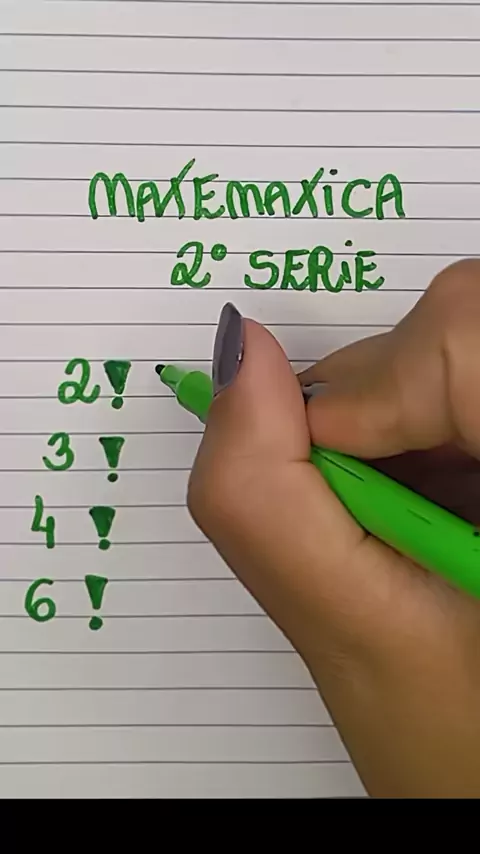 MATEMATICA
2° SERIE
2!
3 !
4 !
6 !